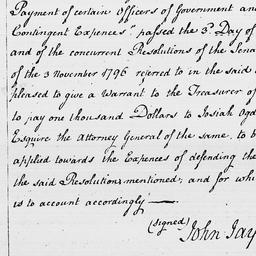 Payment of certain Officers of Government and
Contingent Expences" passed the 3d. Day of
and of the concurrent Resolutions of the Sena
of the 3 November 1796 referred to in the said
pleased to give a Warrant to the Treasurer of
to pay one thousand Dollars to Josiah Ogd
Esquire the Attorney General of the same, to b
applied towards the Expences of defending the
the said Resolutions mentioned; and for wh
is to account accordingly —
(signed)
John Jay